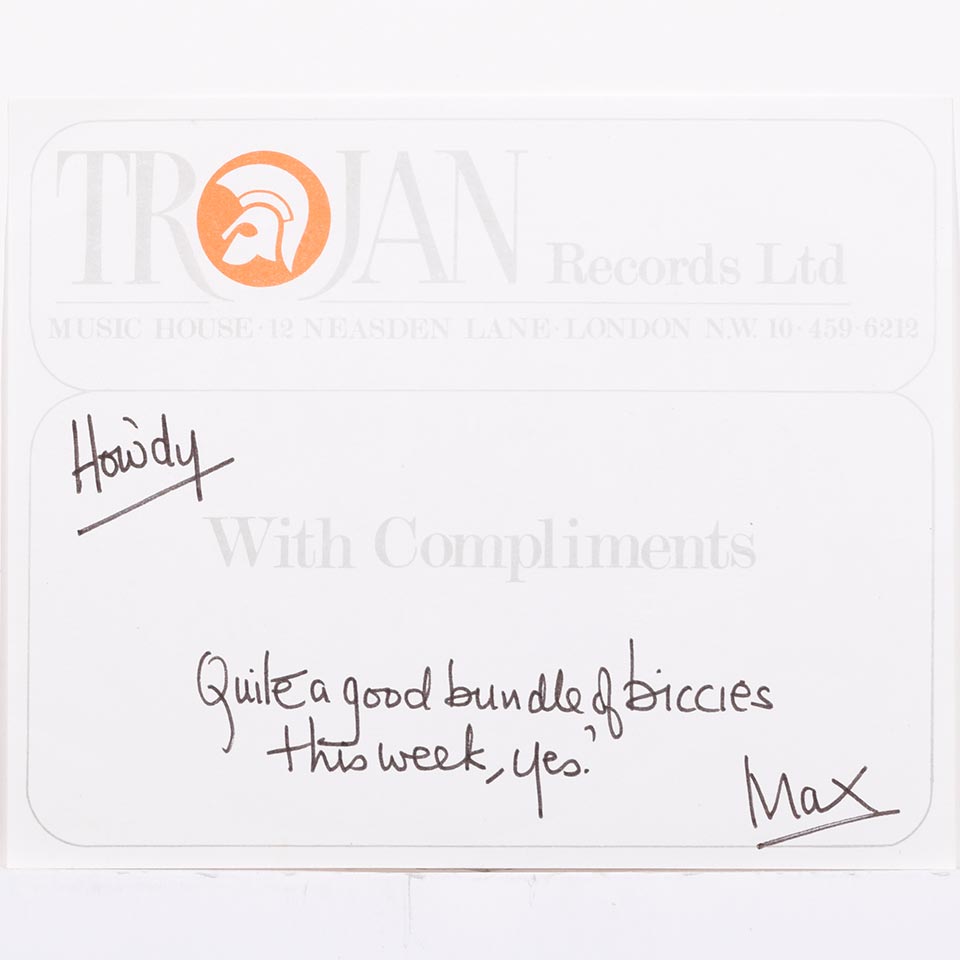 TROJAN Records Ltd
MUSIC HOUSE · 12 NEASDEN LANE · LONDON N.W. 10 · 459 · 6212
Howdy
With Compliments
Quite a good bundle of biccies
this week, yes?
Max